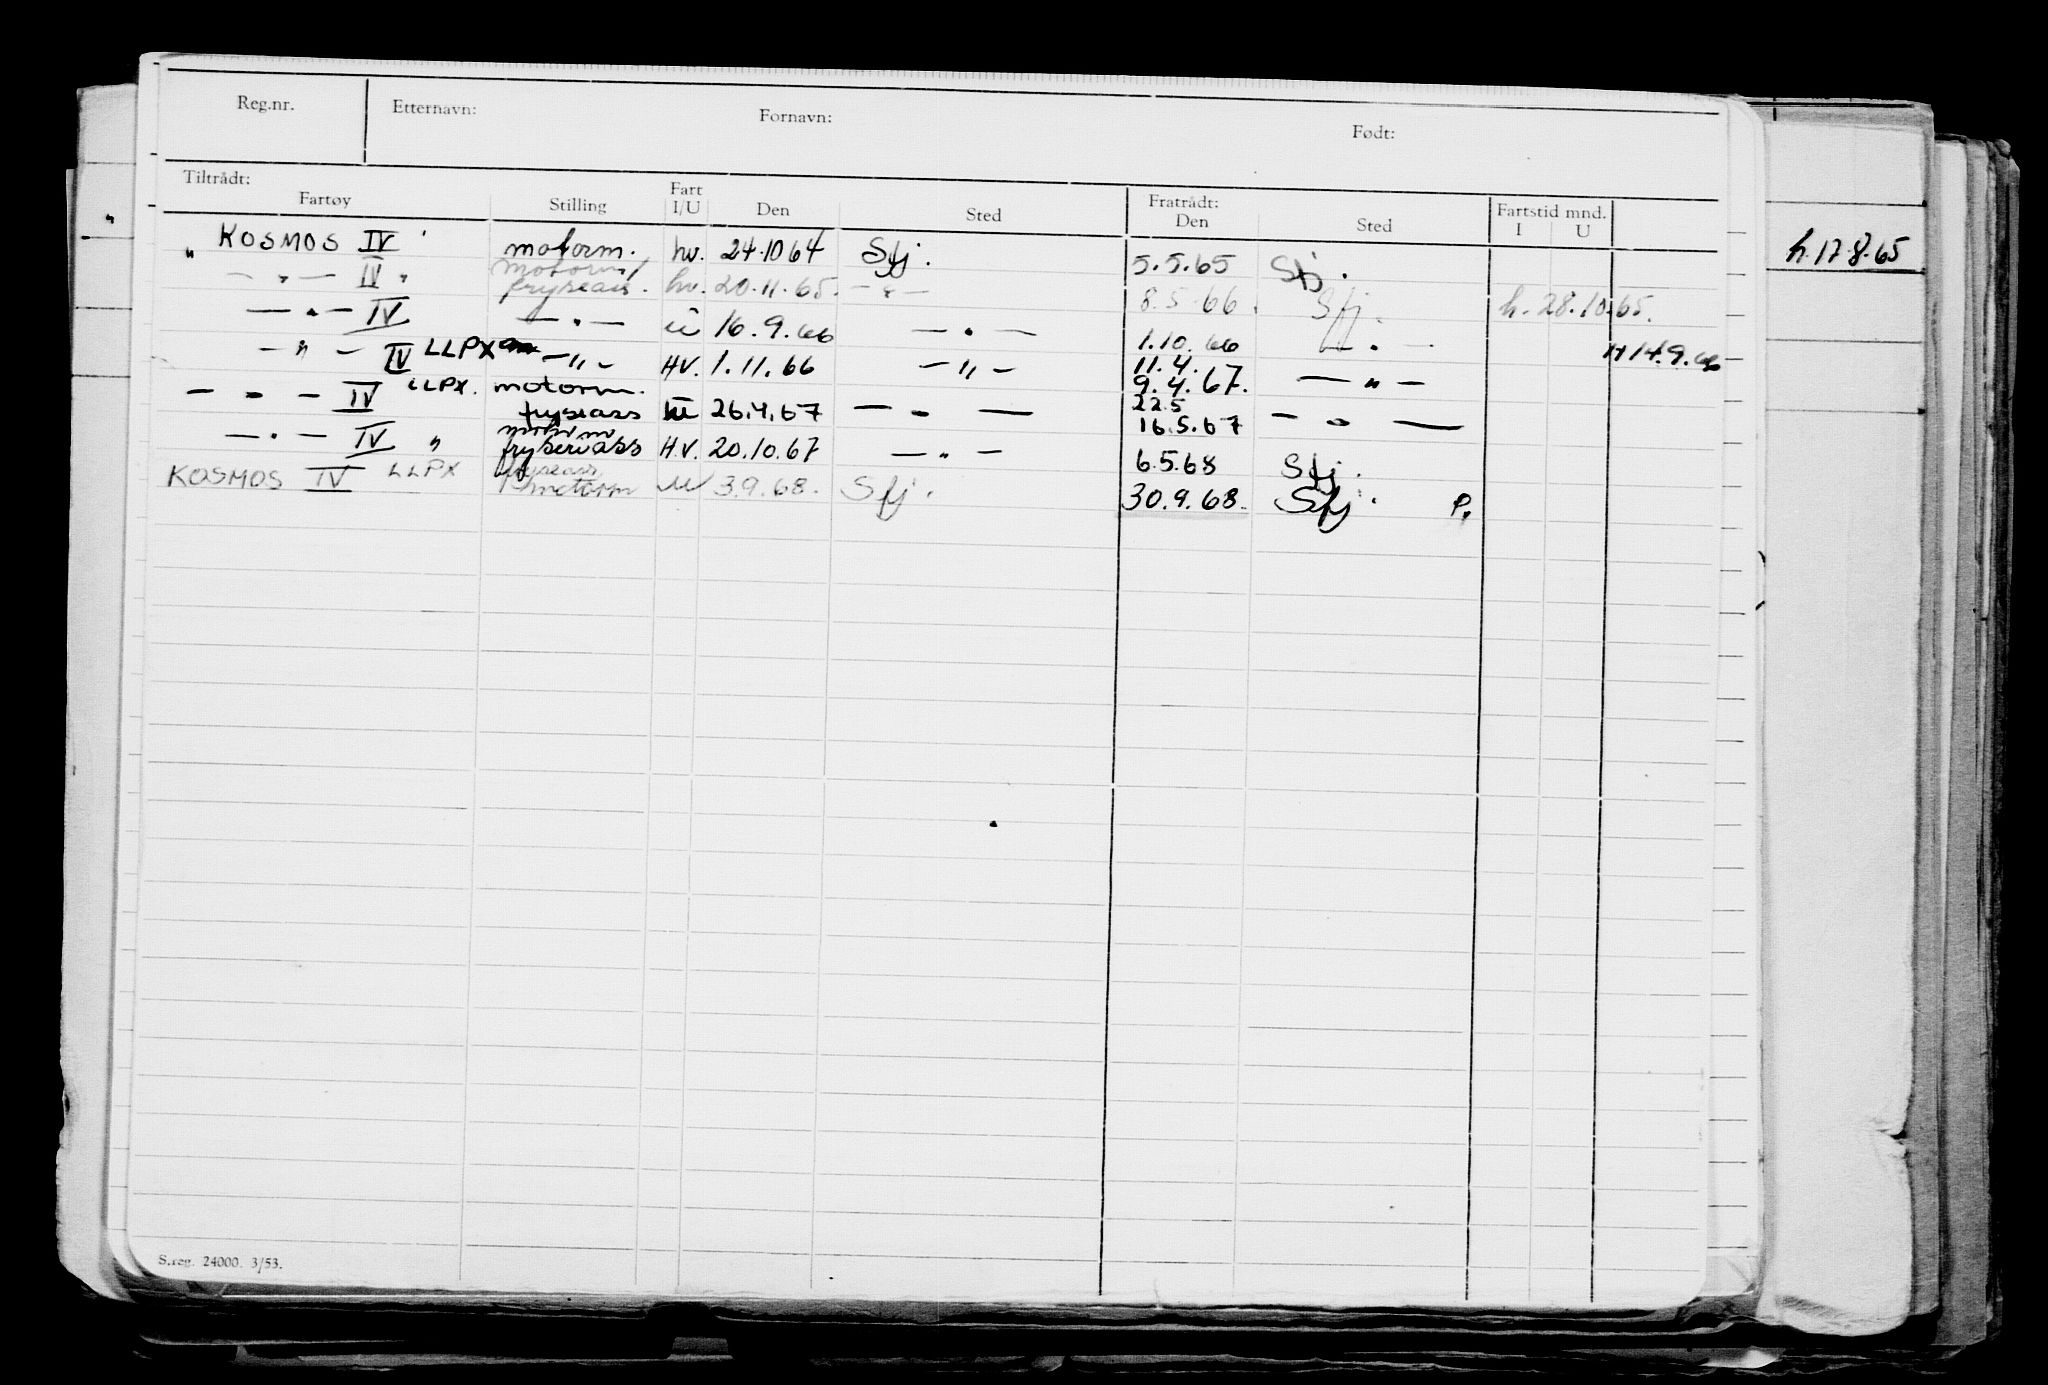 Reg.nr. Etternavn: Fornavn: Født:
Tiltrådt: Fratrådt:
Fartøy Stilling Fart I/U Den Sted Den Sted Fartstid mnd. I U
" KOSMOS IV " motorm. hv. 24.10 64 Sfj. 5.5.65 Sfj. h. 17.8.65
— " — IV " motorm/ fryseass. hv. 20.11.65. — " — 8.5.66. Sfj. h. 28.10.65.
— " — IV — " — u 16.9.66 — " — 1.10.66 — " — H 14.9.66
— " — IV LLPX — " — HV. 1.11.66 — " — 11.4. 9.4.67. — " —
— " — IV LLPX. motorm. fryseass 26.4.67 — " — 22.5 16.5.67 — " —
— " — IV " motorm fryseriass H.V. 20.10.67 — " — 6.5.68 Sfj.
KOSMOS IV LLPX fryseass motorm u 3.9.68. Sfj. 30.9.68. Sfj. P.
S.reg. 24000. 3/53.